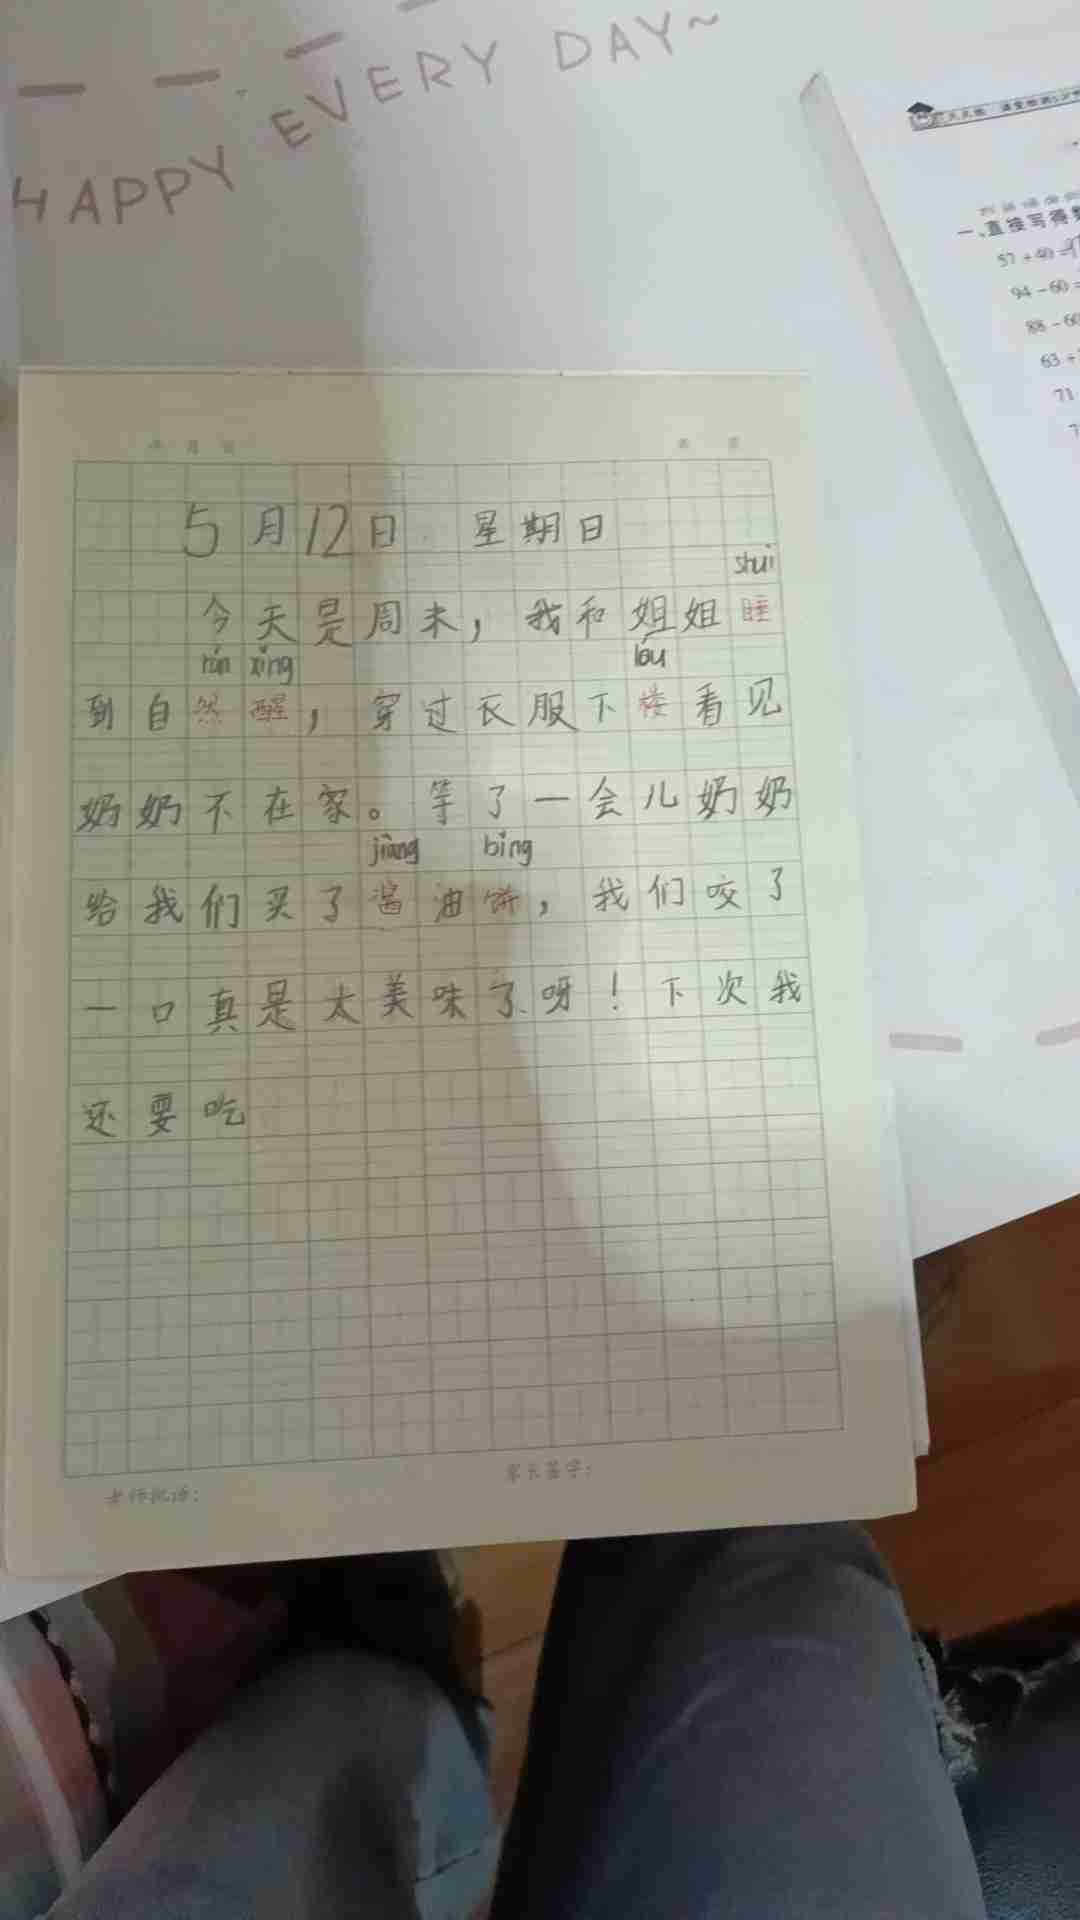 HAPPY EVERY DAY~
一、直接写得
57+40=
94-60=
88-60
63+
71
7
年 月 日
5月12日 星期日
shuì
今天是周末，我和姐姐睡
rán xǐng lóu
到自然醒，穿过衣服下楼看见
奶奶不在家。等了一会儿奶奶
jiàng bǐng
给我们买了酱油饼，我们咬了
一口真是太美味了呀！下次我
还要吃
老师批语：
家长签字：